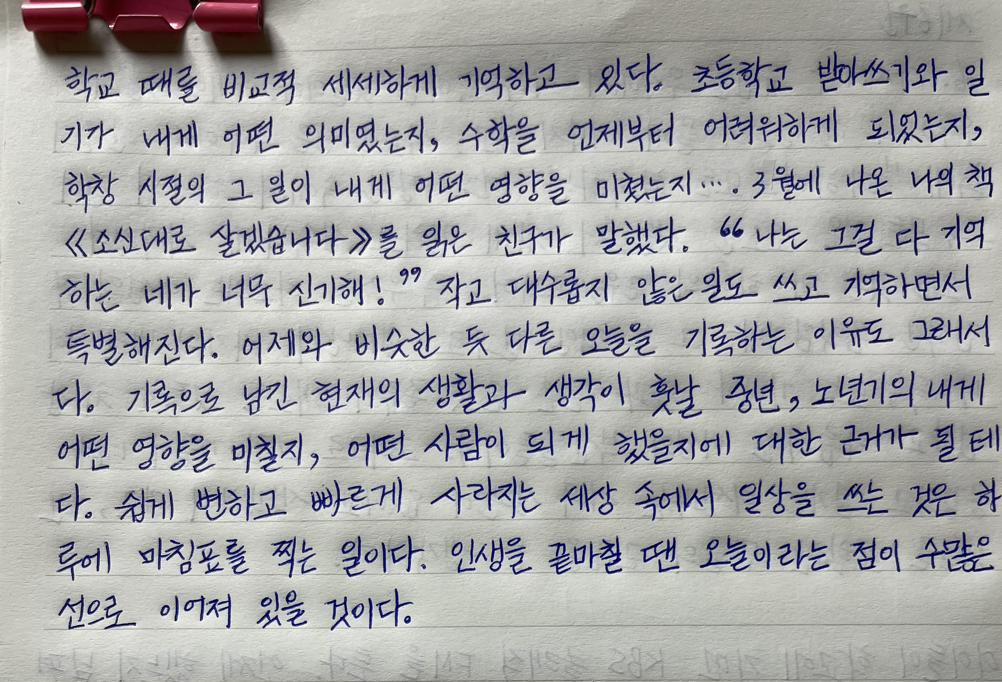 학교 때를 비교적 세세하게 기억하고 있다. 초등학교 받아쓰기와 일
기가 내게 어떤 의미였는지, 수학을 언제부터 어려워하게 되었는지,
학창 시절의 그 일이 내게 어떤 영향을 미쳤는지···. 3월에 나온 나의 책
《소신대로 살겠습니다》를 읽은 친구가 말했다. “나는 그걸 다 기억
하는 네가 너무 신기해!” 작고 대수롭지 않은 일도 쓰고 기억하면서
특별해진다. 어제와 비슷한 듯 다른 오늘을 기록하는 이유도 그래서
다. 기록으로 남긴 현재의 생활과 생각이 훗날 중년, 노년기의 내게
어떤 영향을 미칠지, 어떤 사람이 되게 했을지에 대한 근거가 될 테
다. 쉽게 변하고 빠르게 사라지는 세상 속에서 일상을 쓰는 것은 하
루에 마침표를 찍는 일이다. 인생을 끝마칠 땐 오늘이라는 점이 수많은
선으로 이어져 있을 것이다.